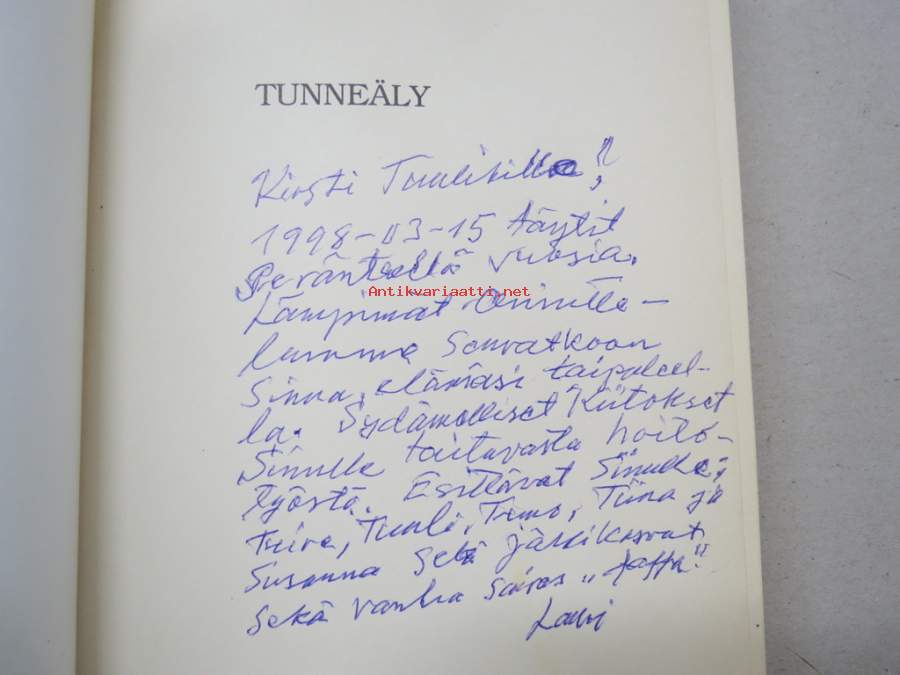 TUNNEÄLY
Kirsti Tuulikille!
1998-03-15 täytit
pyöreitä vuosia.
Antikvariaatti.net
Lämpimät Onnitte-
lumme Seuratkoon
Sinua, elämäsi taipaleel-
la. Sydämelliset Kiitokset
Sinulle taitavasta hoito-
työstä. Esittävät Sinulle;
Tuire, Tuuli, Timo, Tiina ja
Susanna sekä jälkikasvat
sekä vanha sairas „Pappa."
Lauri